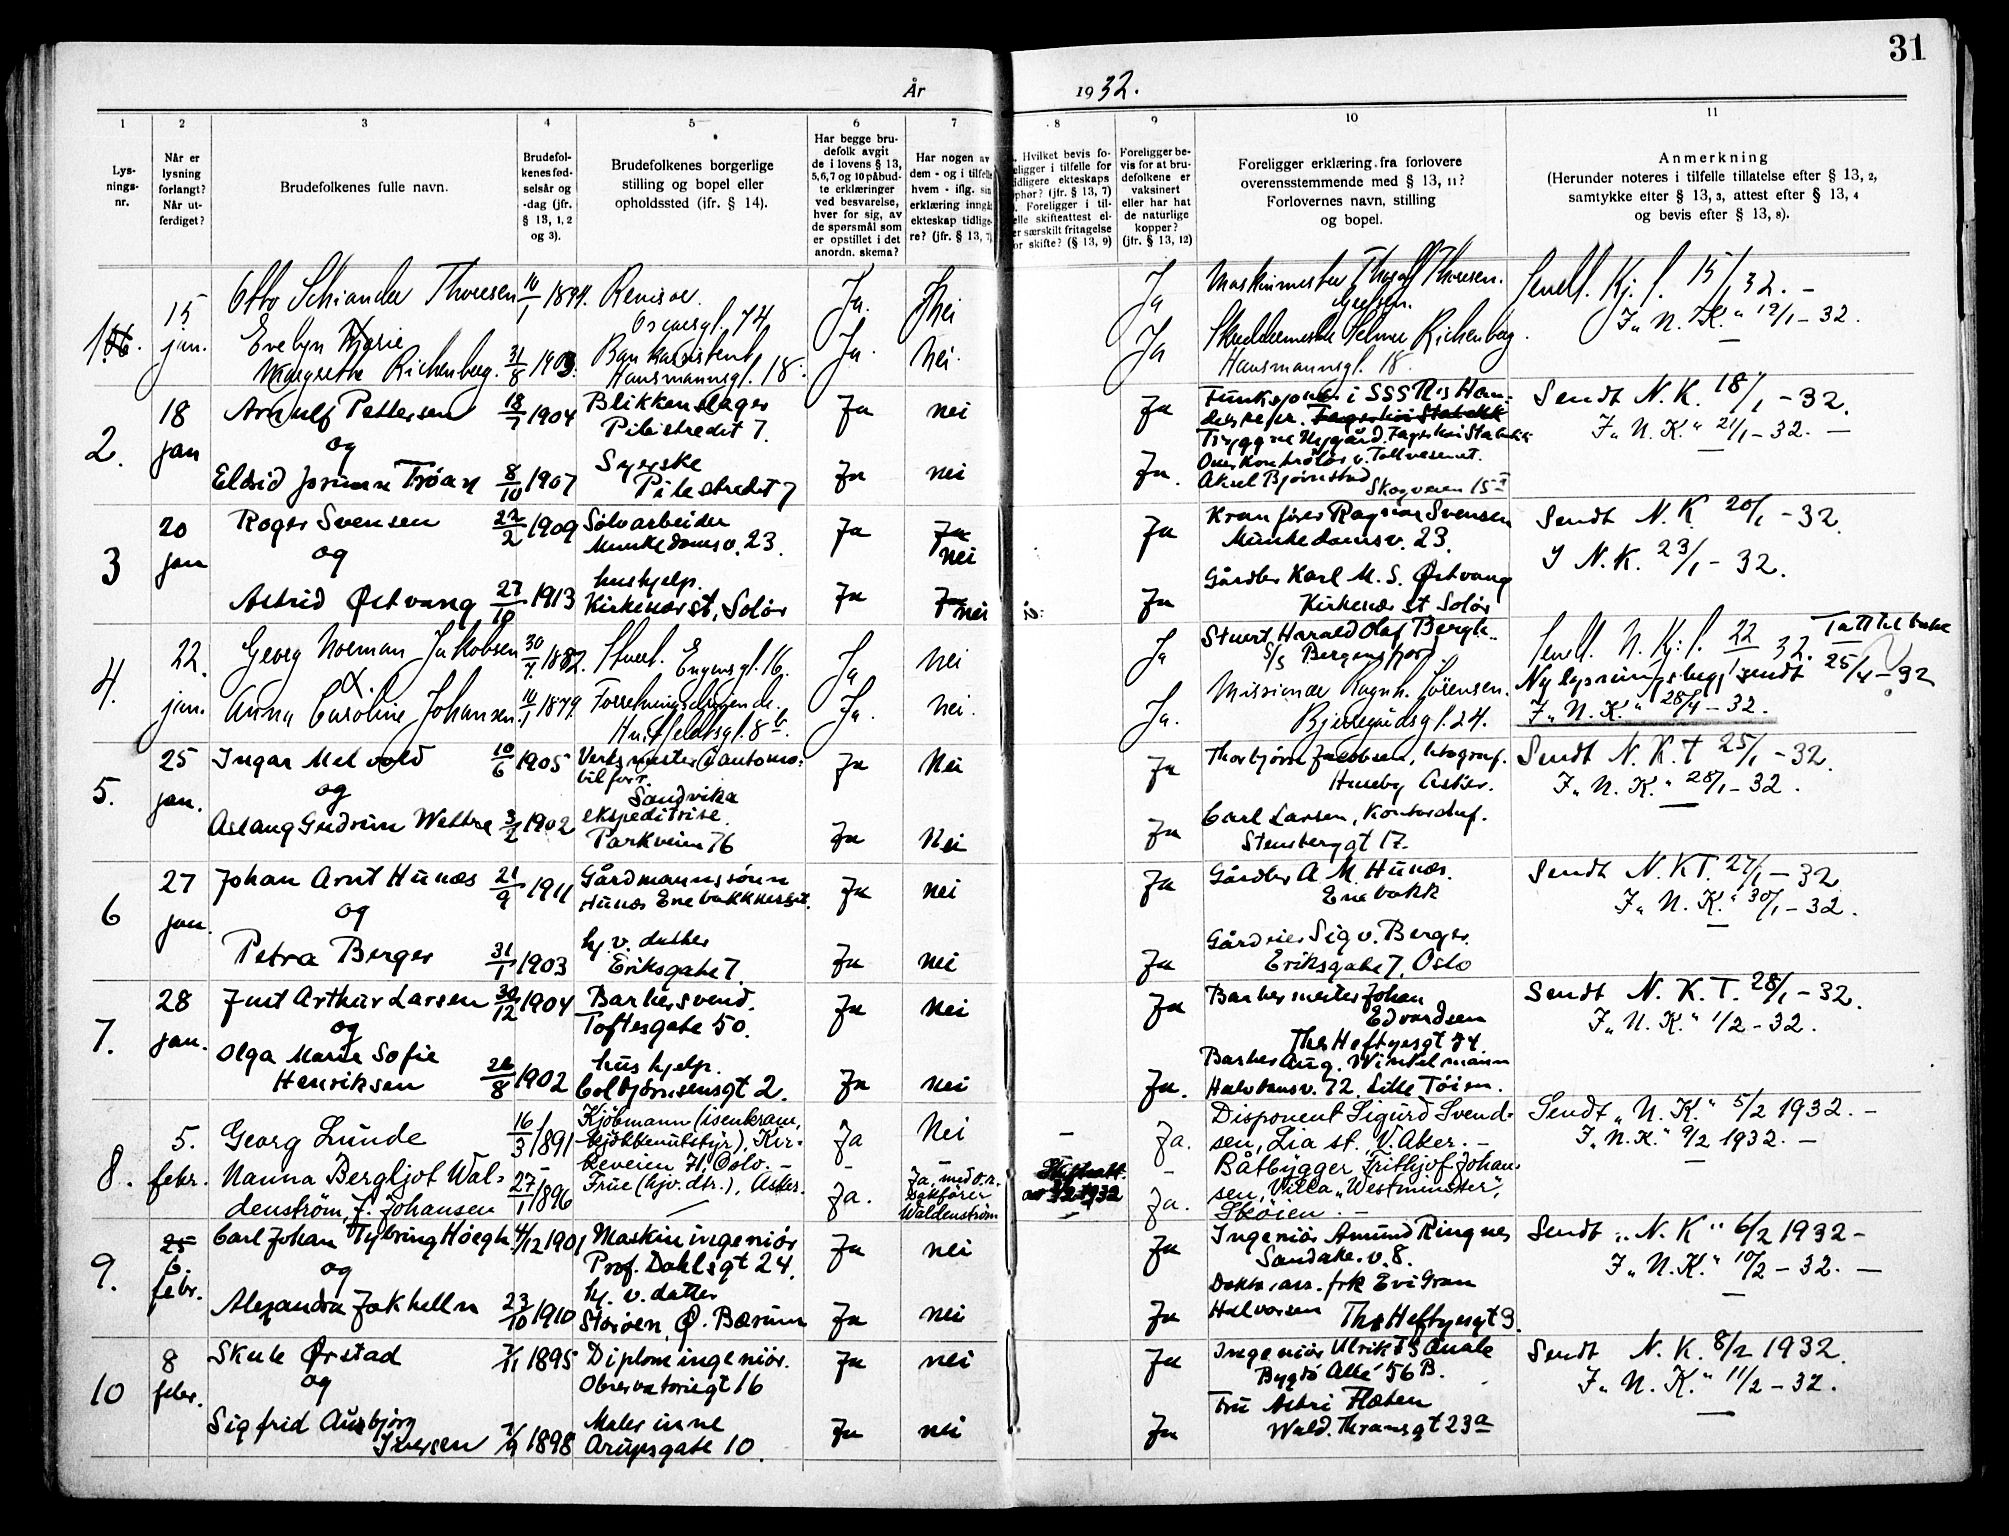 31
År 1932.
1 2 3 4 5 6 7 8 9 10 11
Lys-
nings-
nr.
Når er
lysning
forlangt?
Når ut-
ferdiget?
Brudefolkenes fulle navn.
Brudefol-
kenes fød-
selsår og
-dag (jfr.
§ 13, 1, 2
og 3).
Brudefolkenes borgerlige
stilling og bopel eller
opholdssted (ifr. § 14).
Har begge bru-
defolk avgit
de i lovens § 13,
5, 6, 7 og 10 påbud-
te erklæringer
ved besvarelse,
hver for sig, av
de spørsmål som
er opstillet i det
anordn. skema?
Har nogen av
dem - og i tilfelle
hvem - iflg. sin
erklæring inngått
ekteskap tidlige-
re? (jfr. § 13, 7)
Hvilket bevis fo-
religger i tilfelle for
tidligere ekteskaps
ophør? (jfr. § 13, 7)
Foreligger i til-
felle skifteattest el-
ler særskilt fritagelse
for skifte? (§ 13, 9)
Foreligger be-
vis for at bru-
defolkene er
vaksinert
eller har hat
de naturlige
kopper?
(jfr. § 13, 12)
Foreligger erklæring fra forlovere
overensstemmende med § 13, 11?
Forlovernes navn, stilling
og bopel.
Anmerkning
(Herunder noteres i tilfelle tillatelse efter § 13, 2,
samtykke efter § 13, 3, attest efter § 13, 4
og bevis efter § 13, 8).
1. 15 jan.
Otto Schiander Thoresen 1894. Revisor. Oscarsgt. 74 Ja. Nei Ja Maskinmester Thoresen.
Evelyn Marie
Margrethe Richenberg. 31/8 1903. Bankassistent, Hausmannsgt. 18. Ja. Nei. Ja Richenberg. Hausmannsgt. 18.
Sendt. Kj. f. 15/1 32. -
I „N. K.“ 19/1 - 32.
2. 18 jan
Arnulf Pettersen 18/7 1904 Blikkenslager Pilestredet 7. Ja nei Ja
og
Eldrid Jorunn Trøan 8/10 1907 Syerske Pilestredet 7 Ja nei Ja.
Overkontrollør v. Tollvesenet.
Aksel Bjørnstad Skogveien 15 I
Sendt N. K. 18/1 - 32.
I „N. K.“ 21/1 - 32. -
3 20 jan
Roger Svensen 22/2 1909 Sølvarbeider Munkedamsv. 23. Ja Ja nei Ja Kranfører Ragnar Svensen
Munkedamsv. 23.
og
Astrid Østvang 27/10 1913 hushjelp. Kirkenær st, Solør Ja Ja nei Ja Gårdbr Karl M. S. Østvang
Kirkenær st Solør
Sendt N. K. 20/1 - 32.
I N. K. 23/1 - 32.
4. 22. jan.
Georg Norman Jakobsen 30/7 1882. Stuert. Engensgt. 16. Ja Nei Ja Stuert Harald Olaf Bergh..
S/S Bergensfjord
Anna Caroline Johansen. 1879. Forretningsdrivende. Huitfeldtsgt. 8 b. Ja. Nei. Ja. Missionær Ragnh. Sørensen.
Bjerregårdsgt. 24.
Sendt. N. Kj. f. 22/1 32. Tatt tilbake
Ny lysningsbegj sendt 25/4 - 32
I „N. K.“ 28/4 - 32.
5. 25 jan.
Ingar Melvold 10/6 1905 Verksmester (automo-
bilforr. Sandvika Ja Nei Ja Thorbjørn Jacobsen, litograf.
Huseby Asker.
og
Aslaug Gudrun Wettre 3/2 1902 ekspeditrise. Parkveien 76 Ja Nei Ja Carl Larsen, Kontorchef.
Stensberggt 17.
Sendt N. K. T 25/1 - 32.
I „N. K.“ 28/1 - 32.
6 27 jan.
Johan Arnt Hunæs 21/9 1911 Gårdmannssønn Hunæs Enebakkneset. Ja nei Ja Gårdbr A. M. Hunæs.
Enebakk
og
Petra Berger 31/1 1903 hj. v. datter Eriksgate 7. Ja nei Ja Gårdeier Sigv. Berger.
Eriksgate 7, Oslo
Sendt N. KT. 27/1 - 32
I „N. K.“ 30/1 - 32.
7. 28 jan.
Just Arthur Larsen 30/12 1904 Barbersvend. Toftesgate 50. Ja nei Ja Barbermester Johan
Edvardsen
Ths Heftyesgt 74.
og
Olga Marie Sofie
Henriksen 26/8 1902 hus hjelp. Colbjørnsensgt 2. Ja nei Ja. Barber Aug. Winkelmann
Halvdansv. 72. Lille Tøien.
Sendt N. K. T. 28/1 - 32.
I „N. K.“ 1/2 - 32.
8. 5. febr.
Georg Lunde 16/3 1891 Kjøbmann (isenkram,
kjøkkenutstyr), Kir-
keveien 71, Oslo. - Ja Nei - Ja. Disponent Sigurd Svend-
sen, Lia st. V. Aker. -
Nanna Bergljot Wal-
denstrøm, f. Johansen 27/1 1896 Frue (hjv. dtr.), Asker. Ja. Ja, med o.r.
sakfører
Waldenstrøm Skifteatt.
av 3/2 1932 Ja. Båtbygger Frithjof Johan-
sen, Villa „Westminster“,
Skøien. -
Sendt „N. K.“ 5/2 1932. -
I „N. K.“ 9/2 1932. -
9. 25 6. febr.
Carl Johan Tybring Høegh 4/12 1901 Maskiningeniør Prof. Dahlsgt 24. Ja nei Ja Ingeniør Amund Ringnes
Sandake.v. 8.
og
Alexandra Jakhelln 23/10 1910 hj. v. datter Storøen, Ø. Bærum Ja nei Ja frk Evi Gran
Halvorsen Ths Heftyesgt 9.
Sendt „N. K“ 6/2 1932 -
I „N. K.“ 10/2 - 32. -
10 8 febr.
Skule Ørstad 1895 Diplomingeniør. Observatoriegt 16 Ja nei Ja Ingeniør Ulrik Quale
Bygdø Allé 56 B.
og
Sigfrid Ausbjørg
Iversen 1898 Malerinne Arupsgate 10. Ja nei Ja Fru Astri Flæten
Wald. Thranesgt 23a
Sendt N. K. 8/2 1932.
I „N. K.“ 11/2 - 32.